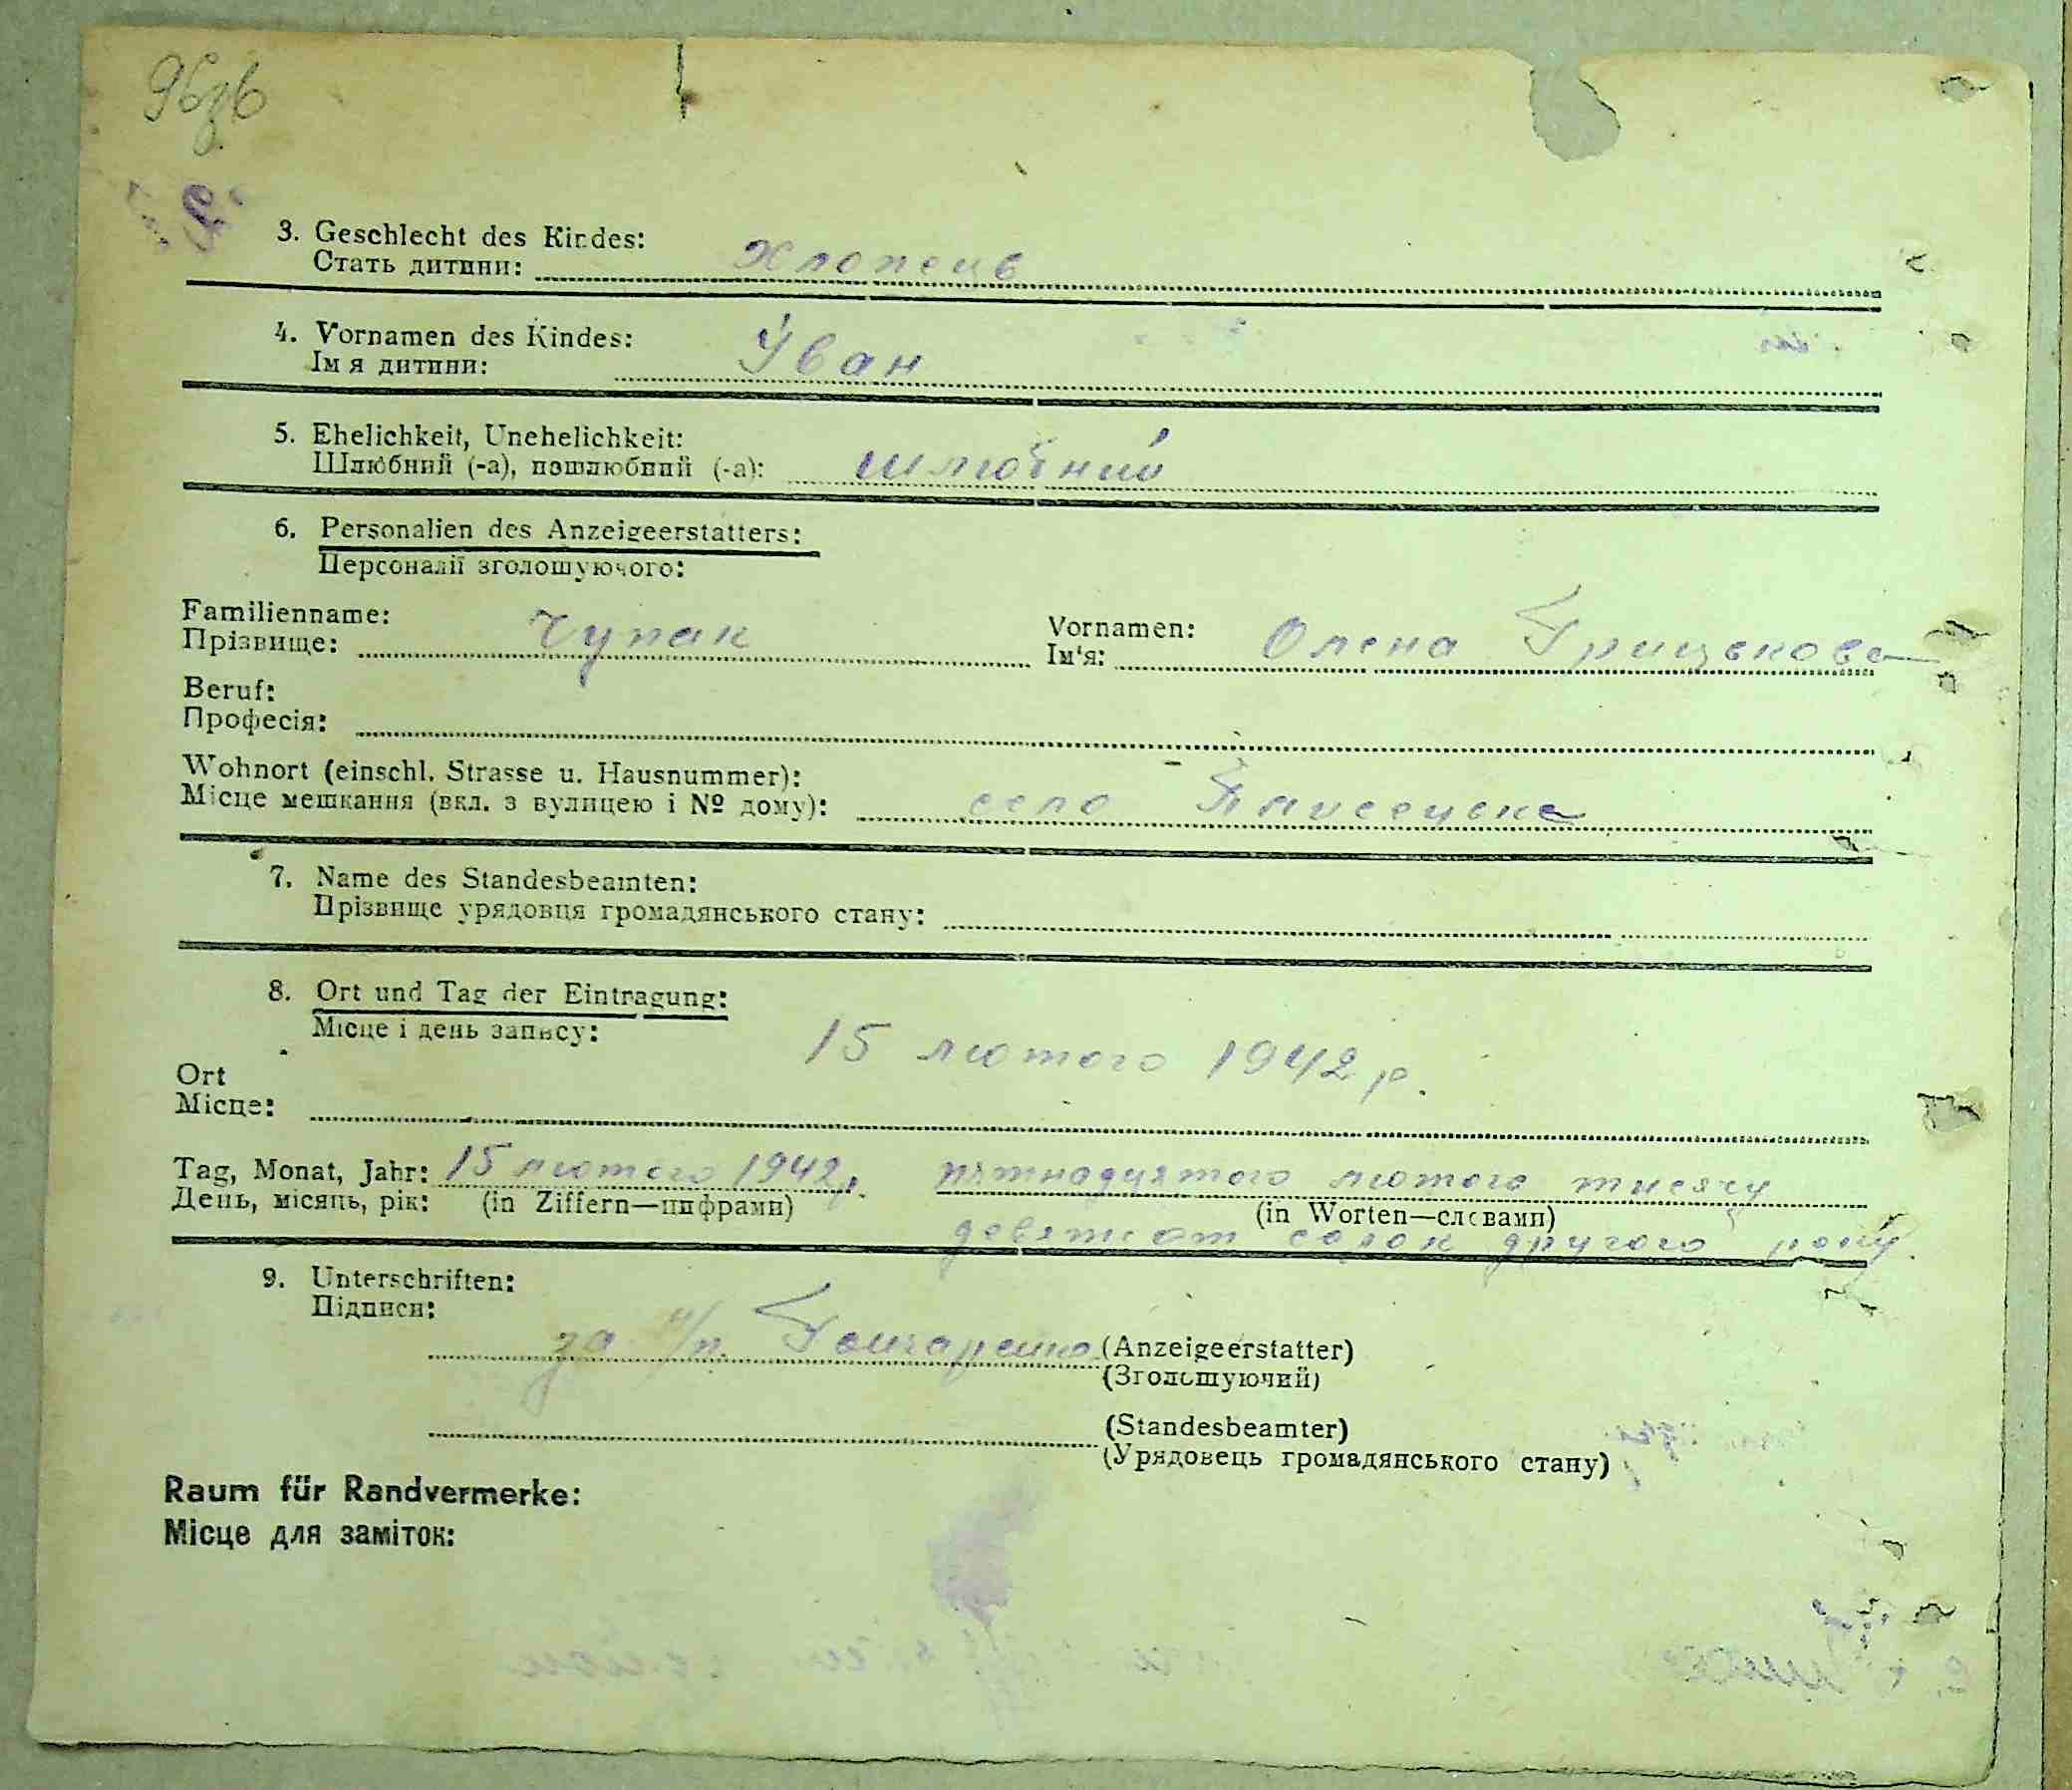 96зв
3. Geschlecht des Kindes:
Стать дитини: Хлопець
4. Vornamen des Kindes:
Ім я дитини: Іван
5. Ehelichkeit, Unehelichkeit:
Шлюбний (-а), пошлюбний (-а): шлюбний
6. Personalien des Anzeigeerstatters:
Персоналії зголошуючого:
Familienname: Vornamen:
Прізвище: Чупак Ім'я: Олена Грицькова
Beruf:
Професія:
Wohnort (einschl. Strasse u. Hausnummer):
Місце мешкання (вкл. з вулицею і № дому): село
7. Name des Standesbeamten:
Прізвище урядовця громадянського стану:
8. Ort und Tag der Eintragung:
Місце і день запису: 15 лютого 1942 р.
Ort
Місце:
Tag, Monat, Jahr: 15 лютого 1942 р. пятнадцятого лютого тисячу
День, місяць, рік: (in Ziffern—цифрами) (in Worten—словами)
девятсот сорок другого року.
9. Unterschriften:
Підписи:
за н/п Гончаренко (Anzeigeerstatter)
(Зголошуючий)
(Standesbeamter)
(Урядовець громадянського стану)
Raum für Randvermerke:
Місце для заміток: